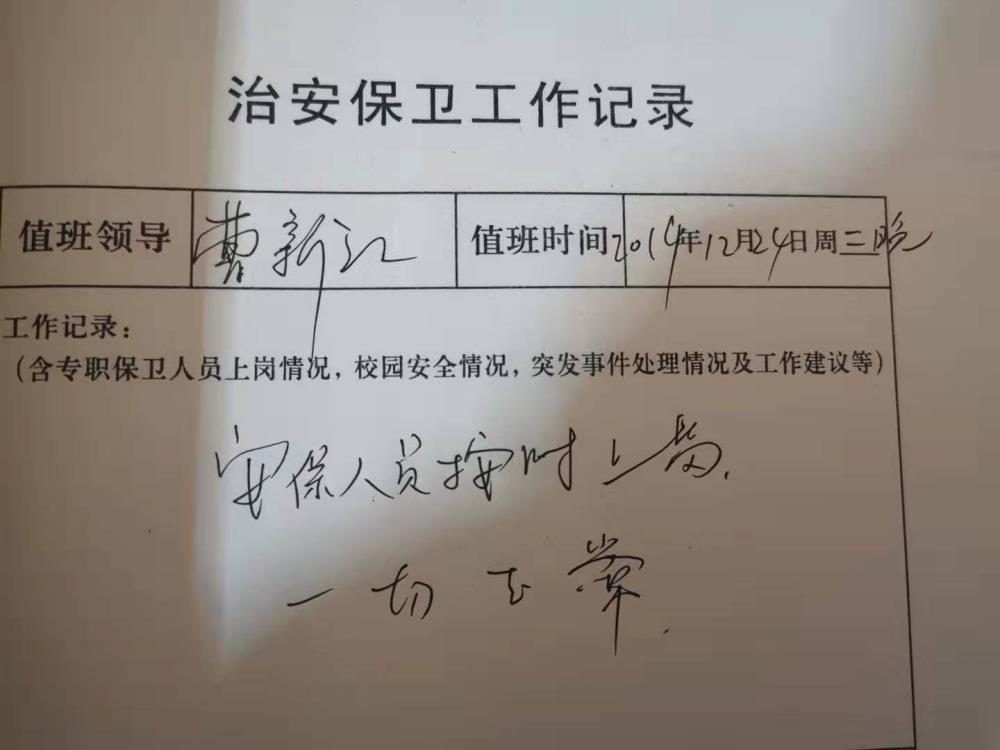 治安保卫工作记录
值班领导 曹新江 值班时间 2014年12月24日周三晚
工作记录：
（含专职保卫人员上岗情况，校园安全情况，突发事件处理情况及工作建议等）
安保人员按时上岗.
一切正常.